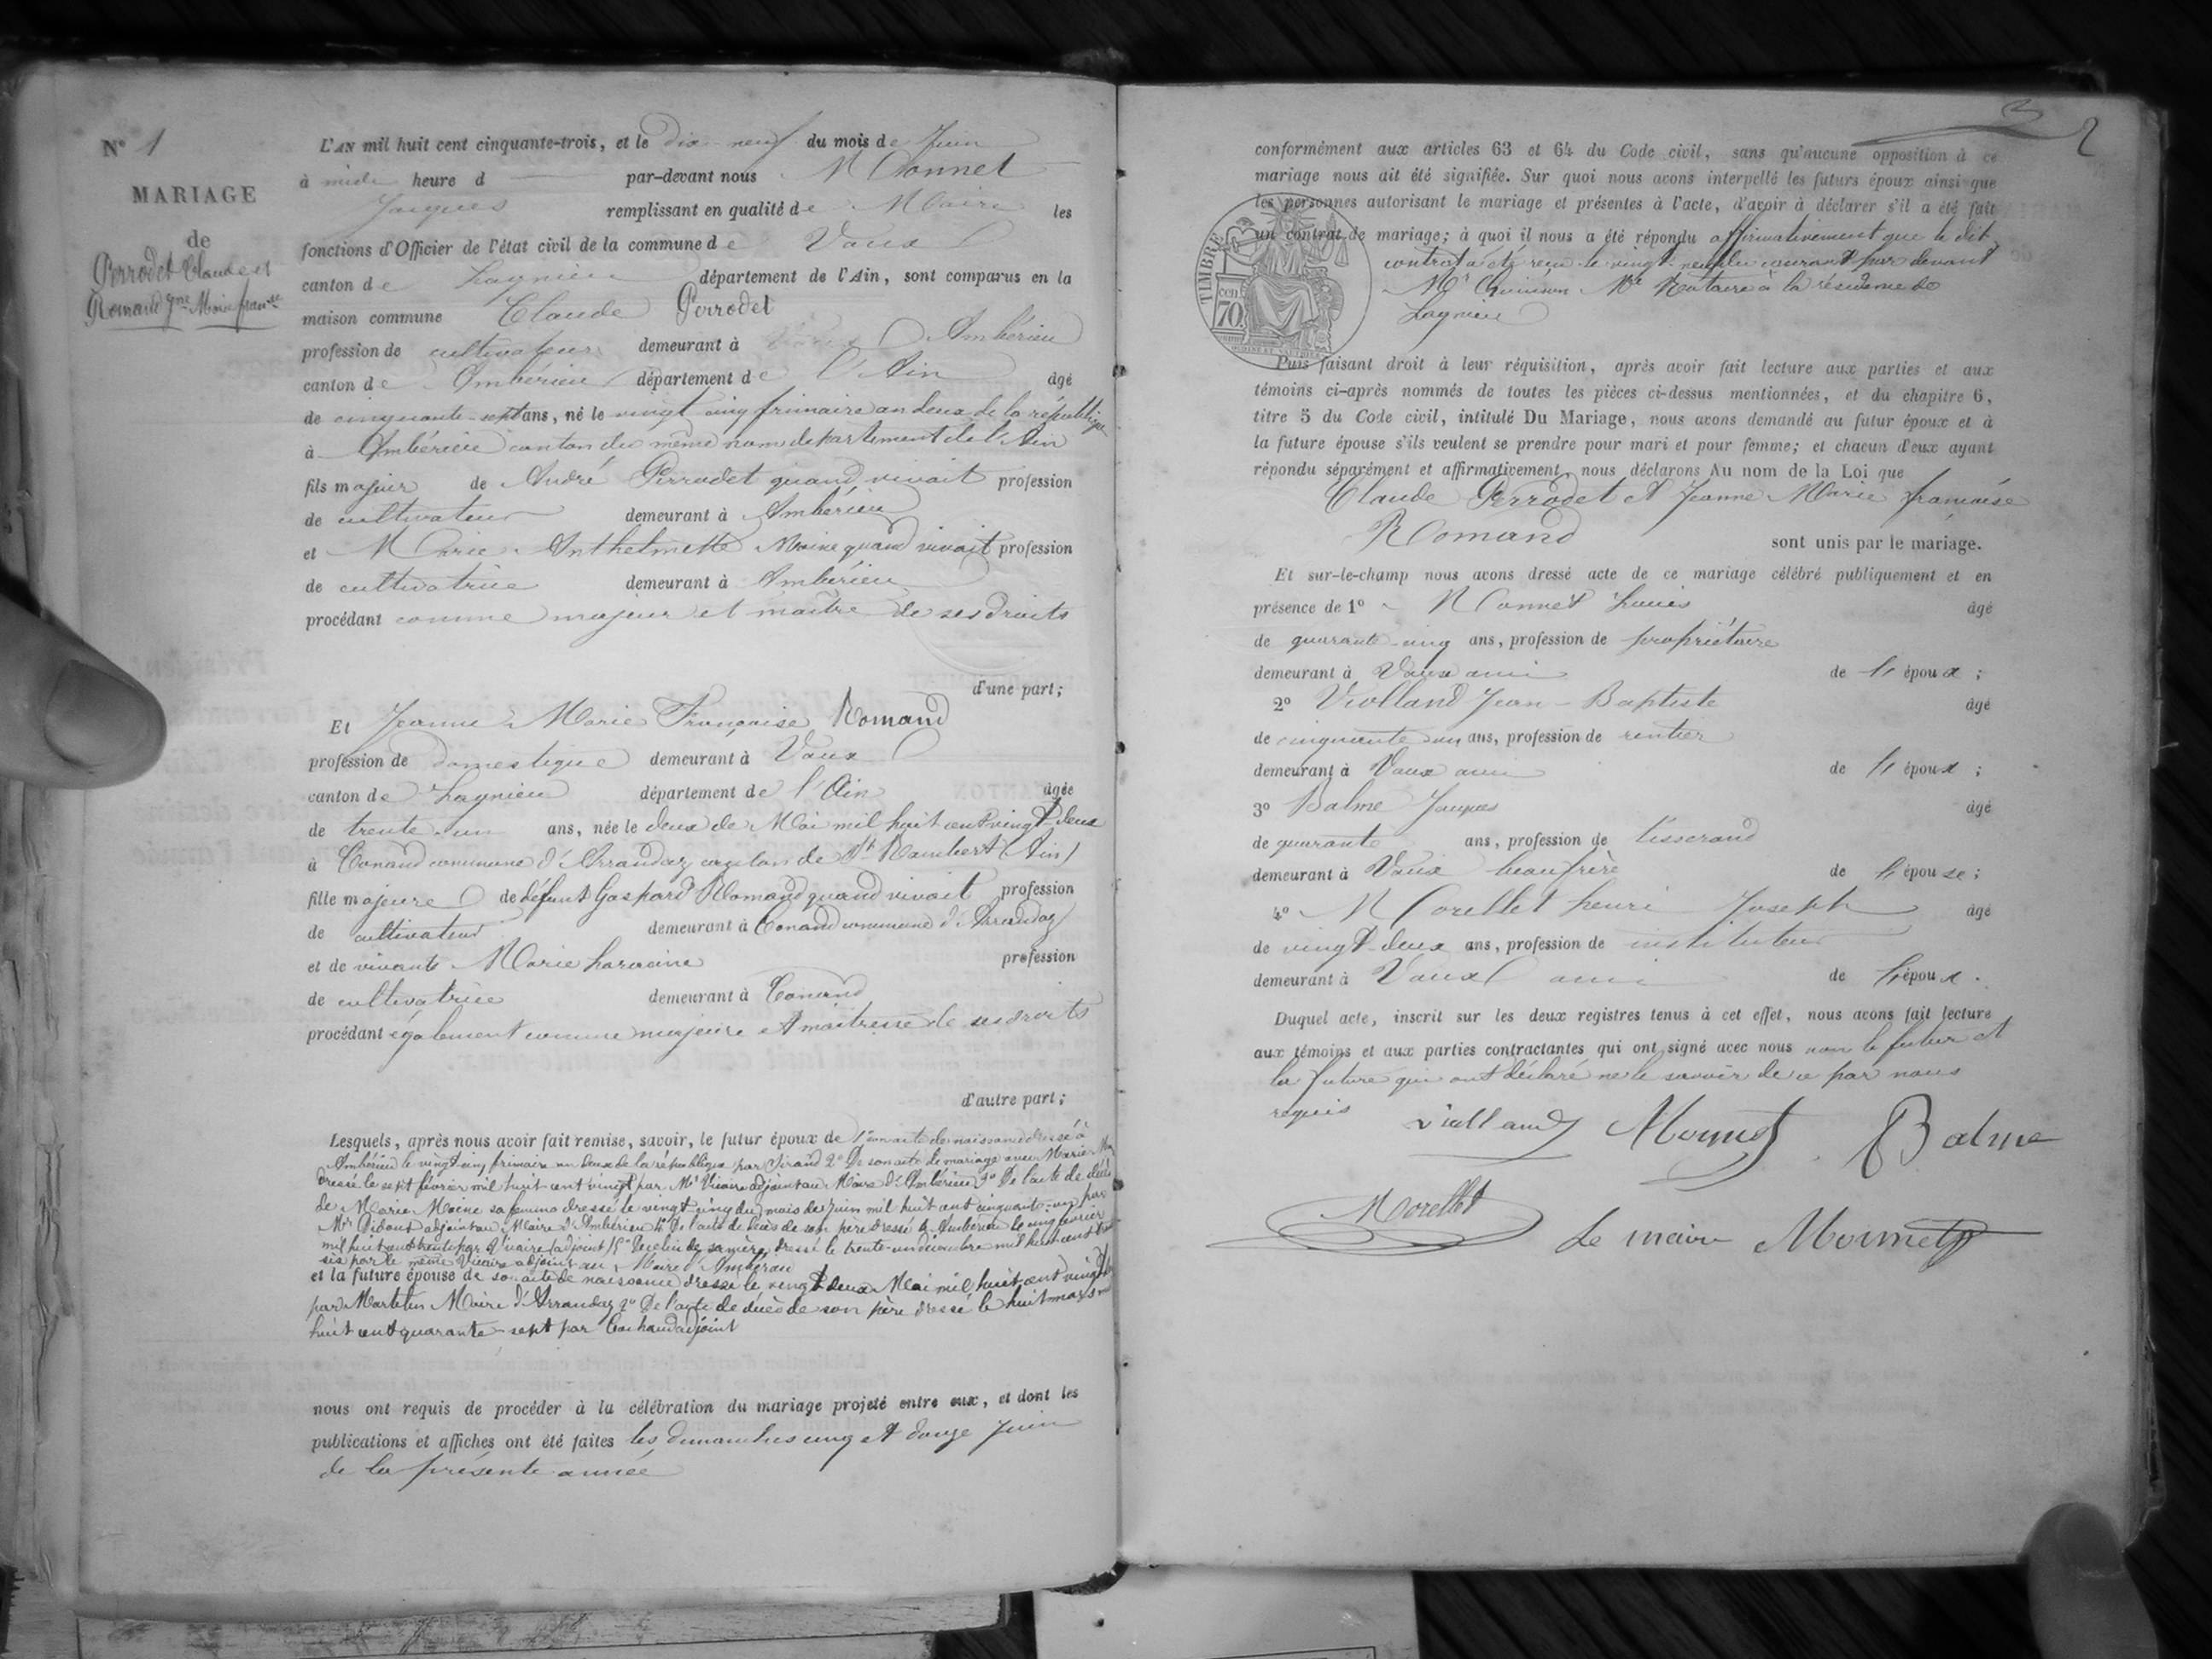 N° 1
MARIAGE
de
Perrodet Claude et
Romand Jne Marie Franse
L'AN mil huit cent cinquante-trois, et le dix-neuf du mois de Juin
à midi heure d par-devant nous Monnet
Jacques remplissant en qualité de Maire les
fonctions d'Officier de l'état civil de la commune de Vaux
canton de Lagnieu département de l'Ain, sont comparus en la
maison commune Claude Perrodet
profession de cultivateur demeurant à Ambérieu
canton de Ambérieu département de l'Ain âgé
de cinquante-sept ans, né le vingt cinq frimaire an deux de la république
à Ambérieu canton du même nom département de l'Ain
fils majeur de André Perrodet quand vivait profession
de cultivateur demeurant à Ambérieu
et Marie Anthelmette Moine quand vivait profession
de cultivatrice demeurant à Ambérieu
procédant comme majeur et maître de ses droits
d'une part;
Et Jeanne Marie Française Romand
profession de domestique demeurant à Vaux
canton de Lagnieu département de l'Ain âgée
de trente-un ans, née le deux de Mai mil huit cent vingt-deux
à Conand commune d'Arrandaz canton de St Rambert (Ain)
fille majeure de défunt Gaspard Romand quand vivait profession
de cultivateur demeurant à Conand commune d'Arrandaz
et de vivante Marie profession
de cultivatrice demeurant à Conand
procédant également comme majeure et maîtresse de ses droits
d'autre part;
Lesquels, après nous avoir fait remise, savoir, le futur époux de 1° son acte de naissance dressé à
Ambérieu le vingt cinq frimaire an deux de la république par Sirand 2° De son acte de mariage avec Marie
dressé le sept février mil huit cent vingt par Mr Vicaire adjoint au Maire d'Ambérieu 3° De l'acte de décès
de Marie Moine sa femme dressé le vingt cinq du mois de juin mil huit cent cinquante-un par
Mr adjoint au Maire d'Ambérieu 4° De l'acte de décès de son père dressé à Ambérieu le cinq février
mil huit cent trente par Vicaire adjoint 5° De celui de sa mère, dressé le trente-un décembre mil huit cent
six par le même Vicaire adjoint au Maire d'Ambérieu
et la future épouse de son acte de naissance dressé le vingt deux Mai mil huit cent vingt
par Martelin Maire d'Arrandaz 2° De l'acte de décès de son père dressé le huit mars
huit cent quarante-sept par adjoint
nous ont requis de procéder à la célébration du mariage projeté entre eux, et dont les
publications et affiches ont été faites les dimanches cinq et douze Juin
de la présente année
2
conformément aux articles 63 et 64 du Code civil, sans qu'aucune opposition à ce
mariage nous ait été signifiée. Sur quoi nous avons interpellé les futurs époux ainsi que
les personnes autorisant le mariage et présentes à l'acte, d'avoir à déclarer s'il a été fait
un contrat de mariage; à quoi il nous a été répondu affirmativement que le dit
contrat a été reçu le vingt-neuf du courant par devant
Mr Me Notaire à la résidence de
Lagnieu
TIMBRE
70
Puis faisant droit à leur réquisition, après avoir fait lecture aux parties et aux
témoins ci-après nommés de toutes les pièces ci-dessus mentionnées, et du chapitre 6,
titre 5 du Code civil, intitulé Du Mariage, nous avons demandé au futur époux et à
la future épouse s'ils veulent se prendre pour mari et pour femme; et chacun d'eux ayant
répondu séparément et affirmativement, nous déclarons Au nom de la Loi que
Claude Perrodet et Jeanne Marie française
Romand sont unis par le mariage.
Et sur-le-champ nous avons dressé acte de ce mariage célébré publiquement et en
présence de 1° Monnet Louis âgé
de quarante-cinq ans, profession de propriétaire
demeurant à Vaux ami de l'époux;
2° Violland Jean-Baptiste âgé
de cinquante un ans, profession de rentier
demeurant à Vaux ami de l'époux;
3° Balme Jacques âgé
de quarante ans, profession de tisserand
demeurant à Vaux beau frère de l'épouse;
4° Morellet henri Joseph âgé
de vingt-deux ans, profession de instituteur
demeurant à Vaux ami de l'époux.
Duquel acte, inscrit sur les deux registres tenus à cet effet, nous avons fait lecture
aux témoins et aux parties contractantes qui ont signé avec nous non le futur et
la future qui ont déclaré ne le savoir de ce par nous
requis violland Monnet Balme
Morellet
Le maire Monnet